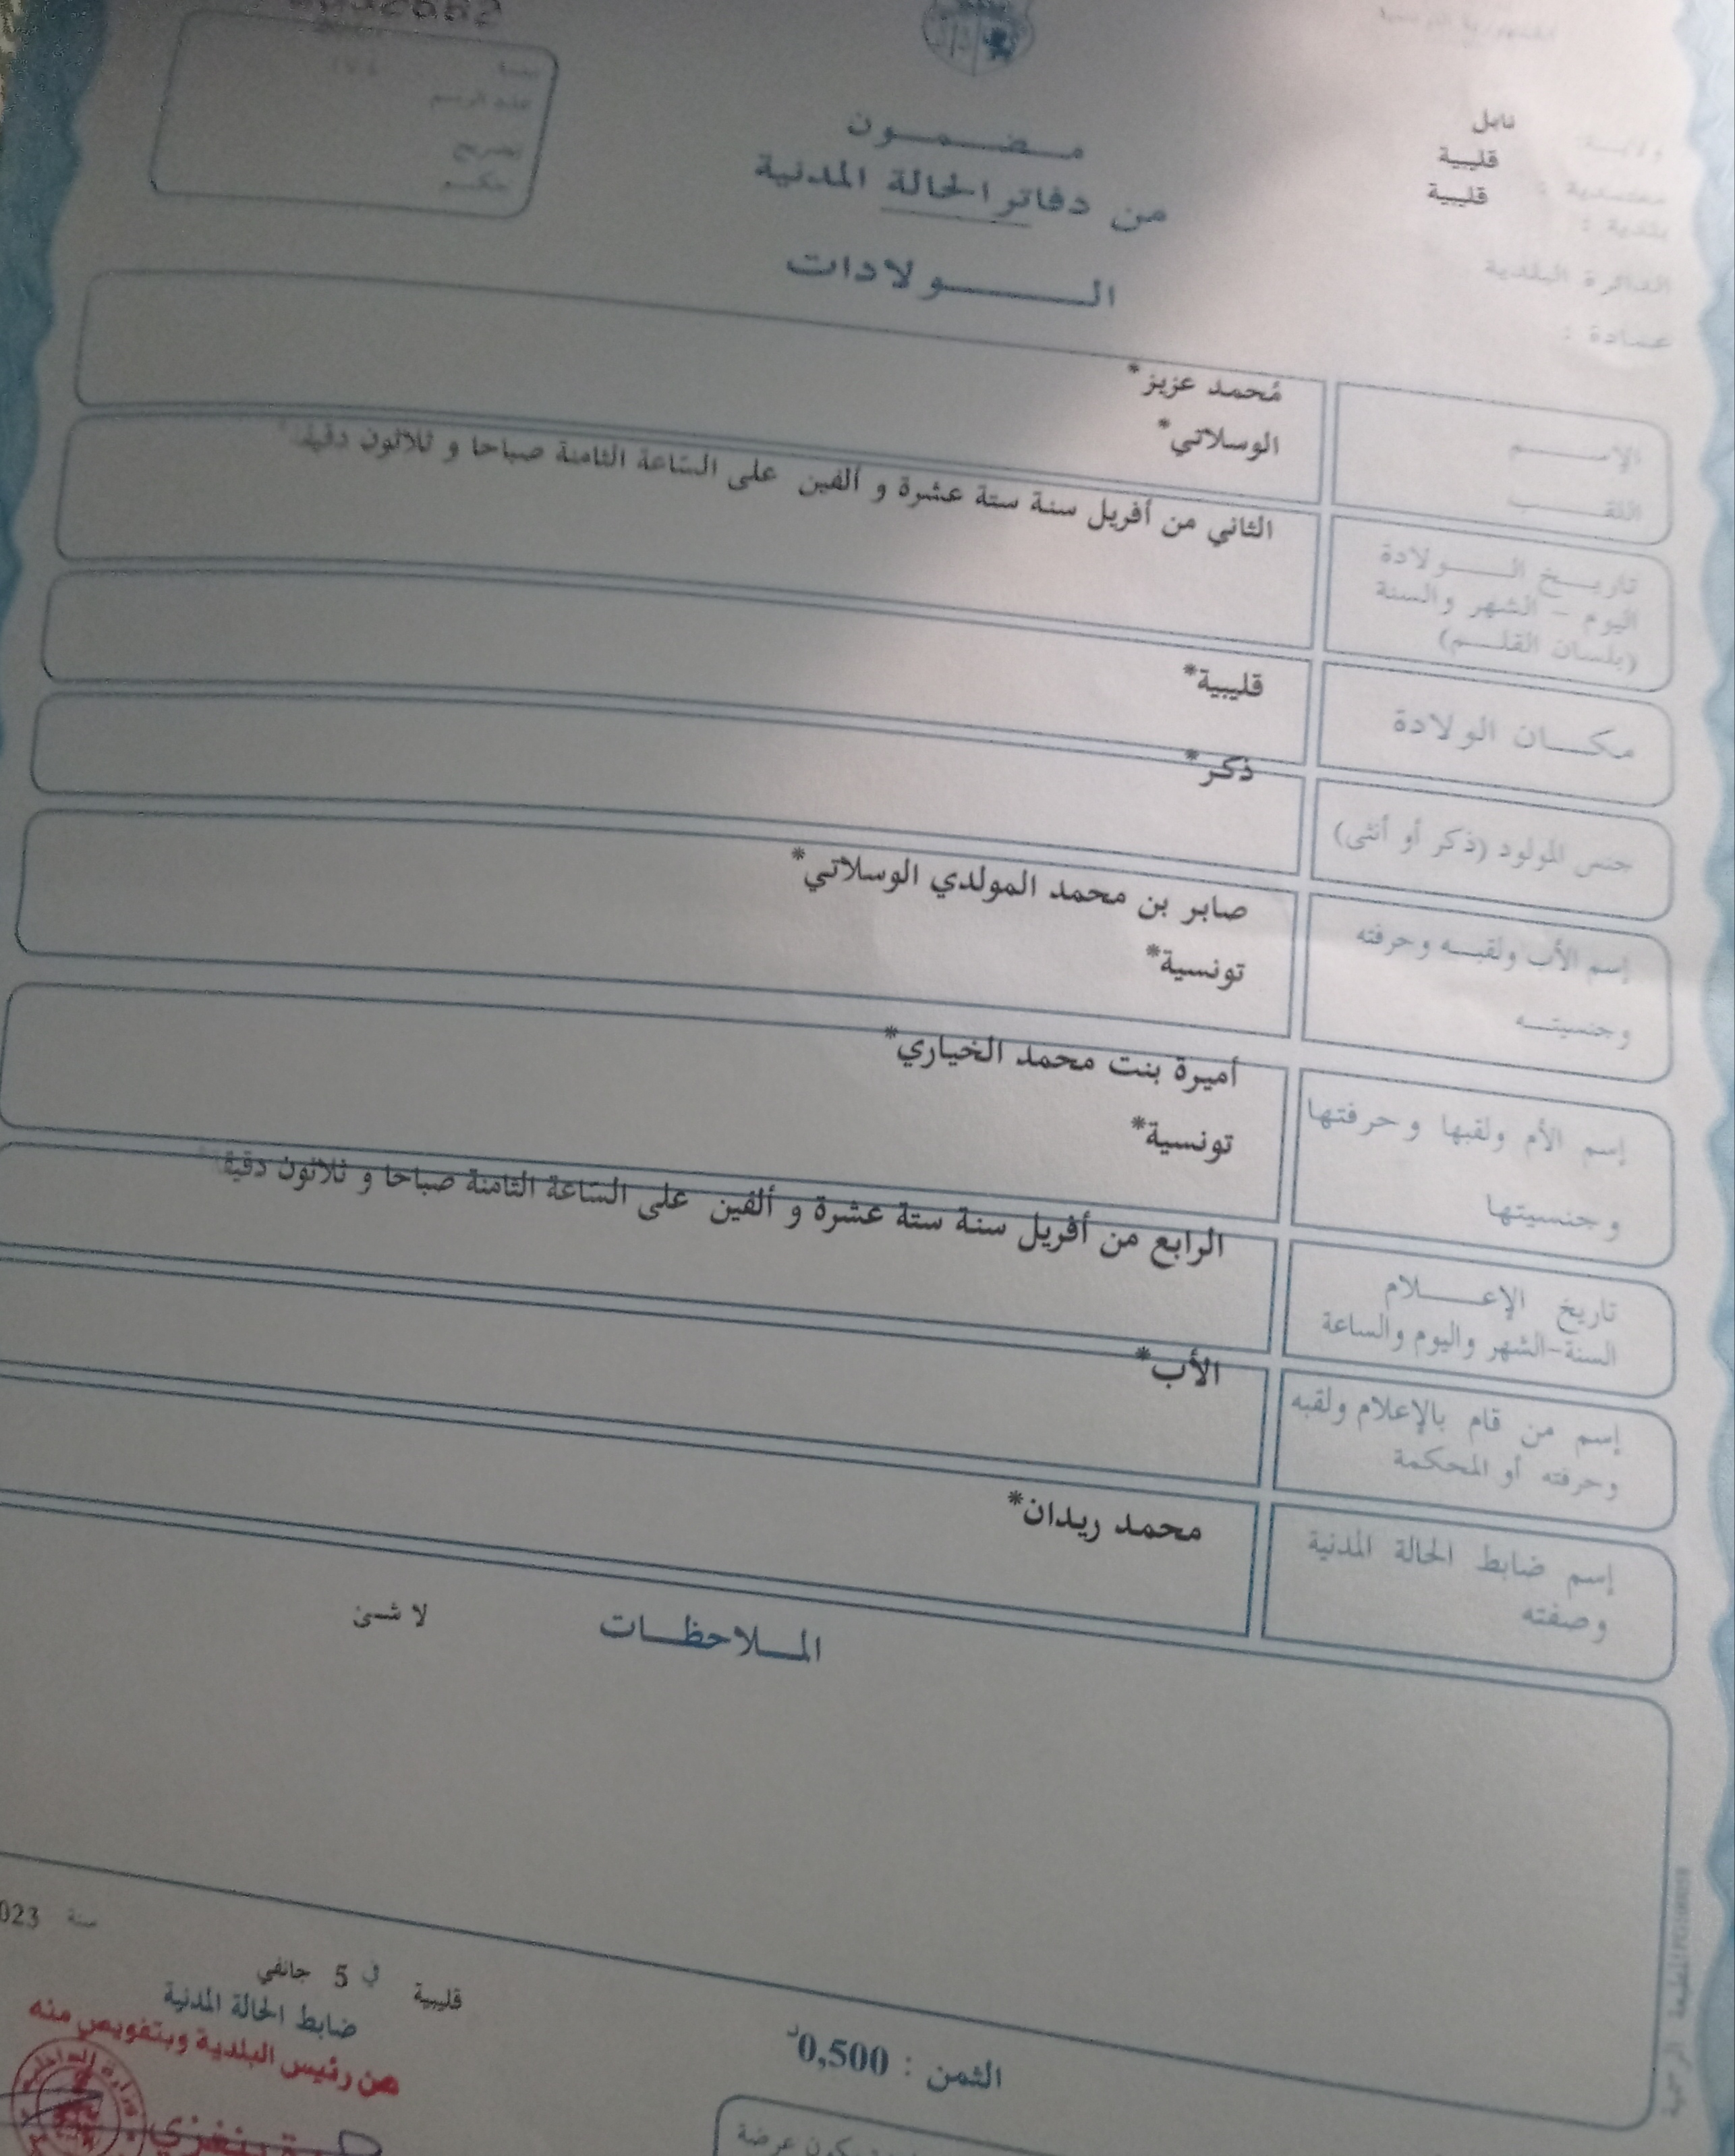 الجمهورية التونسية
ولاية: نابل
معتمدية : قليبية
بلدية : قليبية
الدائرة البلدية
عمادة :
عدد الرسم
تصريح
حكم
مضمون
من دفاتر الحالة المدنية
الولادات
الإسم
مُحمد عزيز*
اللقب
الوسلاتي*
تاريخ الولادة
اليوم - الشهر والسنة
(بلسان القلم)
الثاني من أفريل سنة ستة عشرة و ألفين على السّاعة الثامنة صباحا و ثلاثون دقيقة*
مكان الولادة
قليبية*
جنس المولود (ذكر أو أنثى)
ذكر*
إسم الأب ولقبه وحرفته
صابر بن محمد المولدي الوسلاتي*
وجنسيته
تونسية*
إسم الأم ولقبها وحرفتها
أميرة بنت محمد الخياري*
وجنسيتها
تونسية*
تاريخ الإعلام
السنة-الشهر واليوم والساعة
الرابع من أفريل سنة ستة عشرة و ألفين على السّاعة الثامنة صباحا و ثلاثون دقيقة
إسم من قام بالإعلام ولقبه
وحرفته أو المحكمة
الأب*
إسم ضابط الحالة المدنية
وصفته
محمد ريدان*
الملاحظات
لا شئ
قليبية في 5 جانفي سنة 023
ضابط الحالة المدنية
عن رئيس البلدية وبتفويض منه
الثمن : 0,500د
المطبعة الرسمية